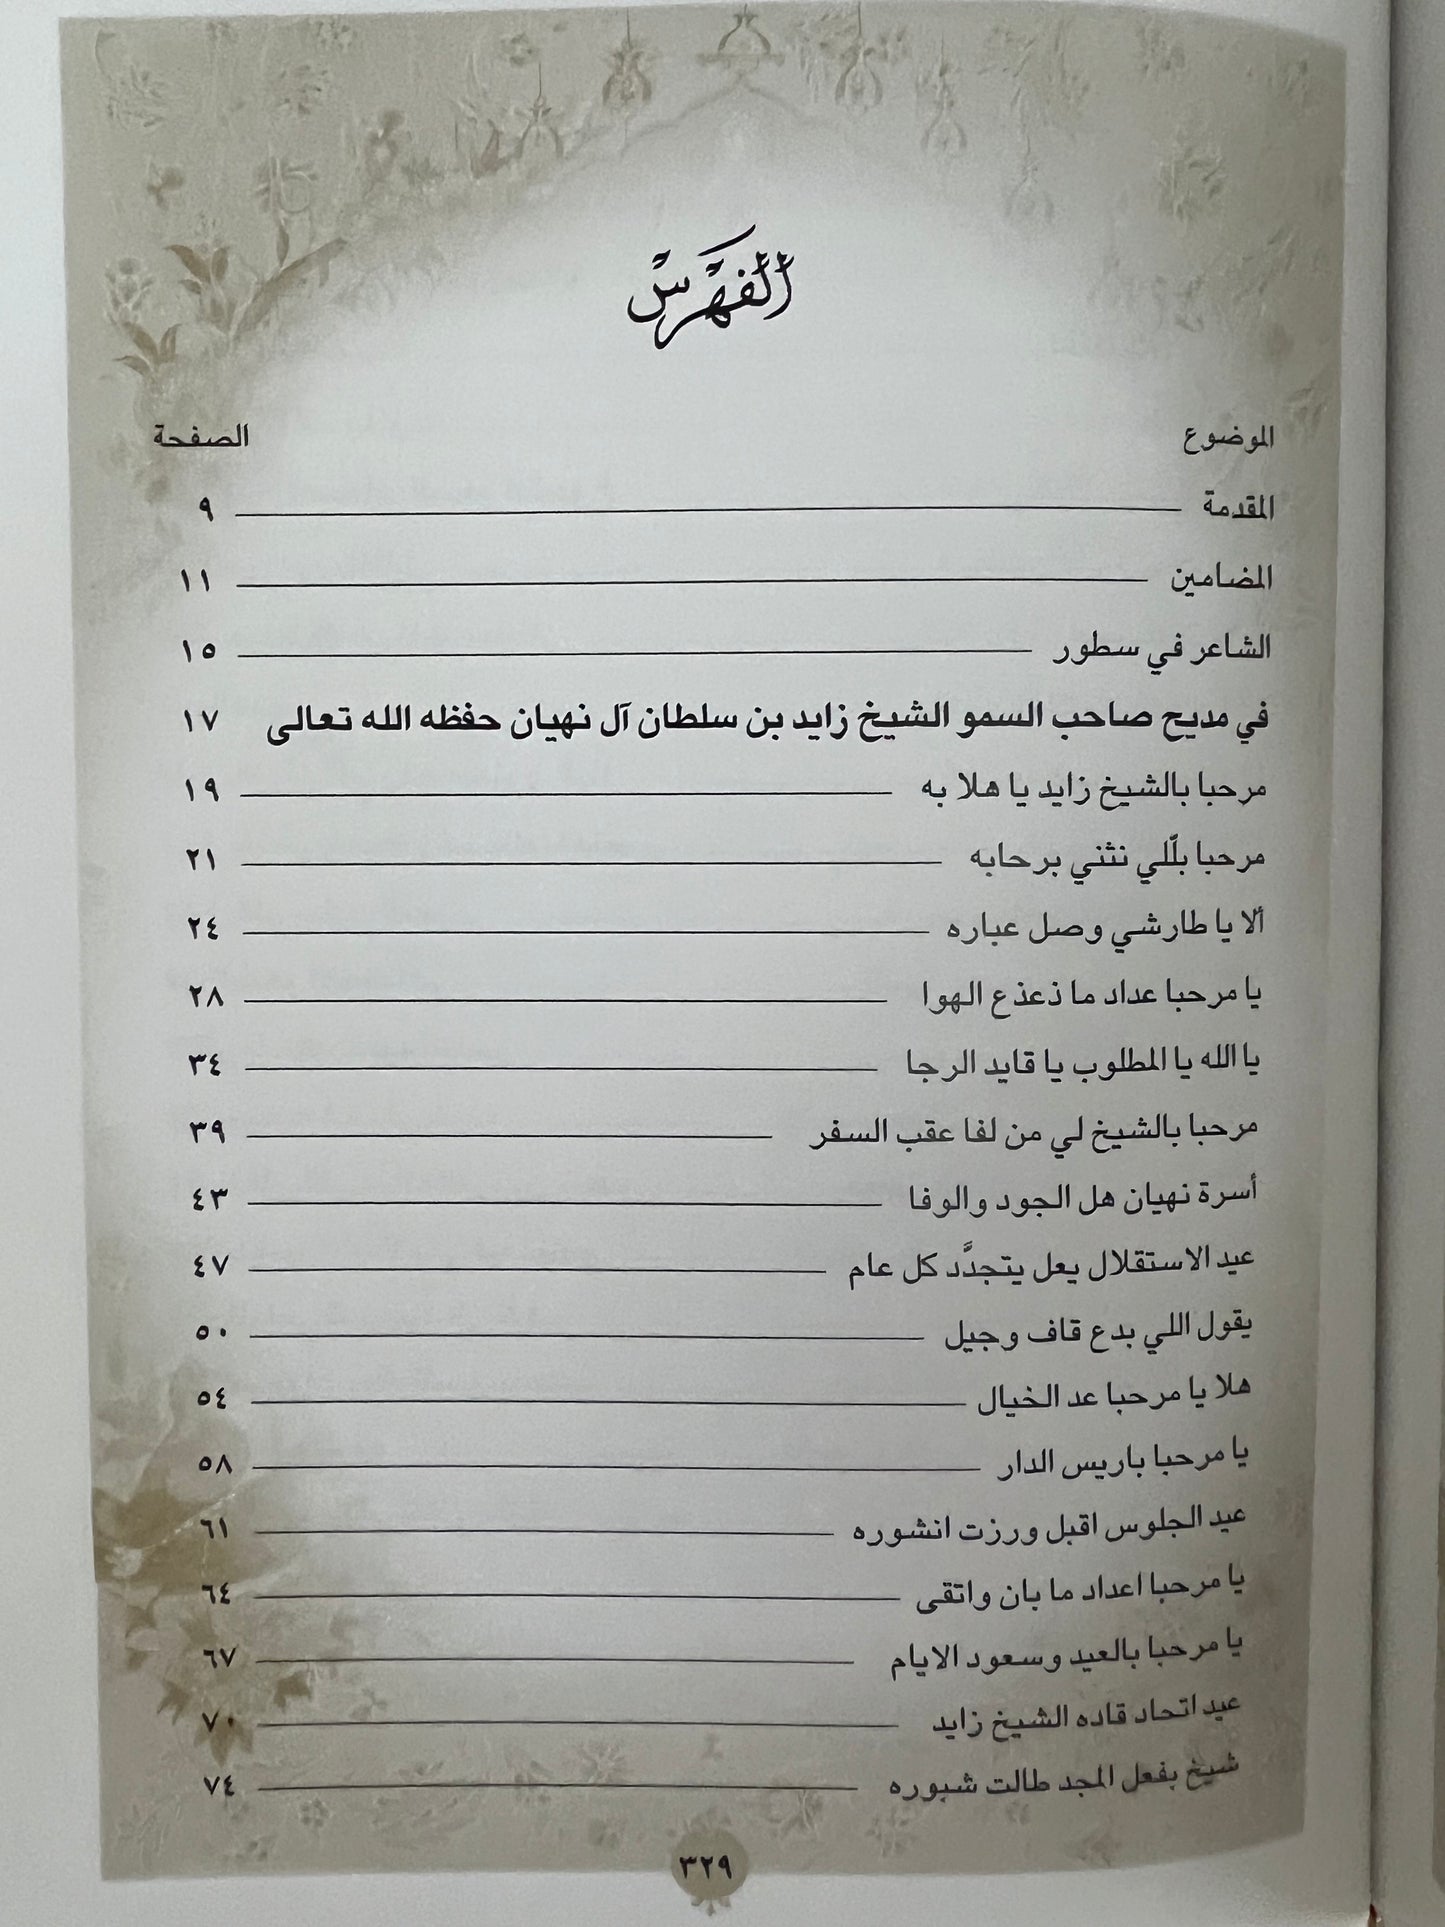 الفهرس
الموضوع الصفحة
المقدمة ٩
المضامين ١١
الشاعر في سطور ١٥
في مديح صاحب السمو الشيخ زايد بن سلطان آل نهيان حفظه الله تعالى ١٧
مرحبا بالشيخ زايد يا هلا به ١٩
مرحبا بلّلي نثني برحابه ٢١
ألا يا طارشي وصل عباره ٢٤
يا مرحبا عداد ما ذعذع الهوا ٢٨
يا الله يا المطلوب يا قايد الرجا ٣٤
مرحبا بالشيخ لي من لفا عقب السفر ٣٩
أسرة نهيان هل الجود والوفا ٤٣
عيد الاستقلال يعل يتجدَّد كل عام ٤٧
يقول اللي بدع قاف وجيل ٥٠
هلا يا مرحبا عد الخيال ٥٤
يا مرحبا باريس الدار ٥٨
عيد الجلوس اقبل ورزت انشوره ٦١
يا مرحبا اعداد ما بان واتقى ٦٤
يا مرحبا بالعيد وسعود الايام ٦٧
عيد اتحاد قاده الشيخ زايد ٧٠
شيخ بفعل المجد طالت شبوره ٧٤
٣٢٩